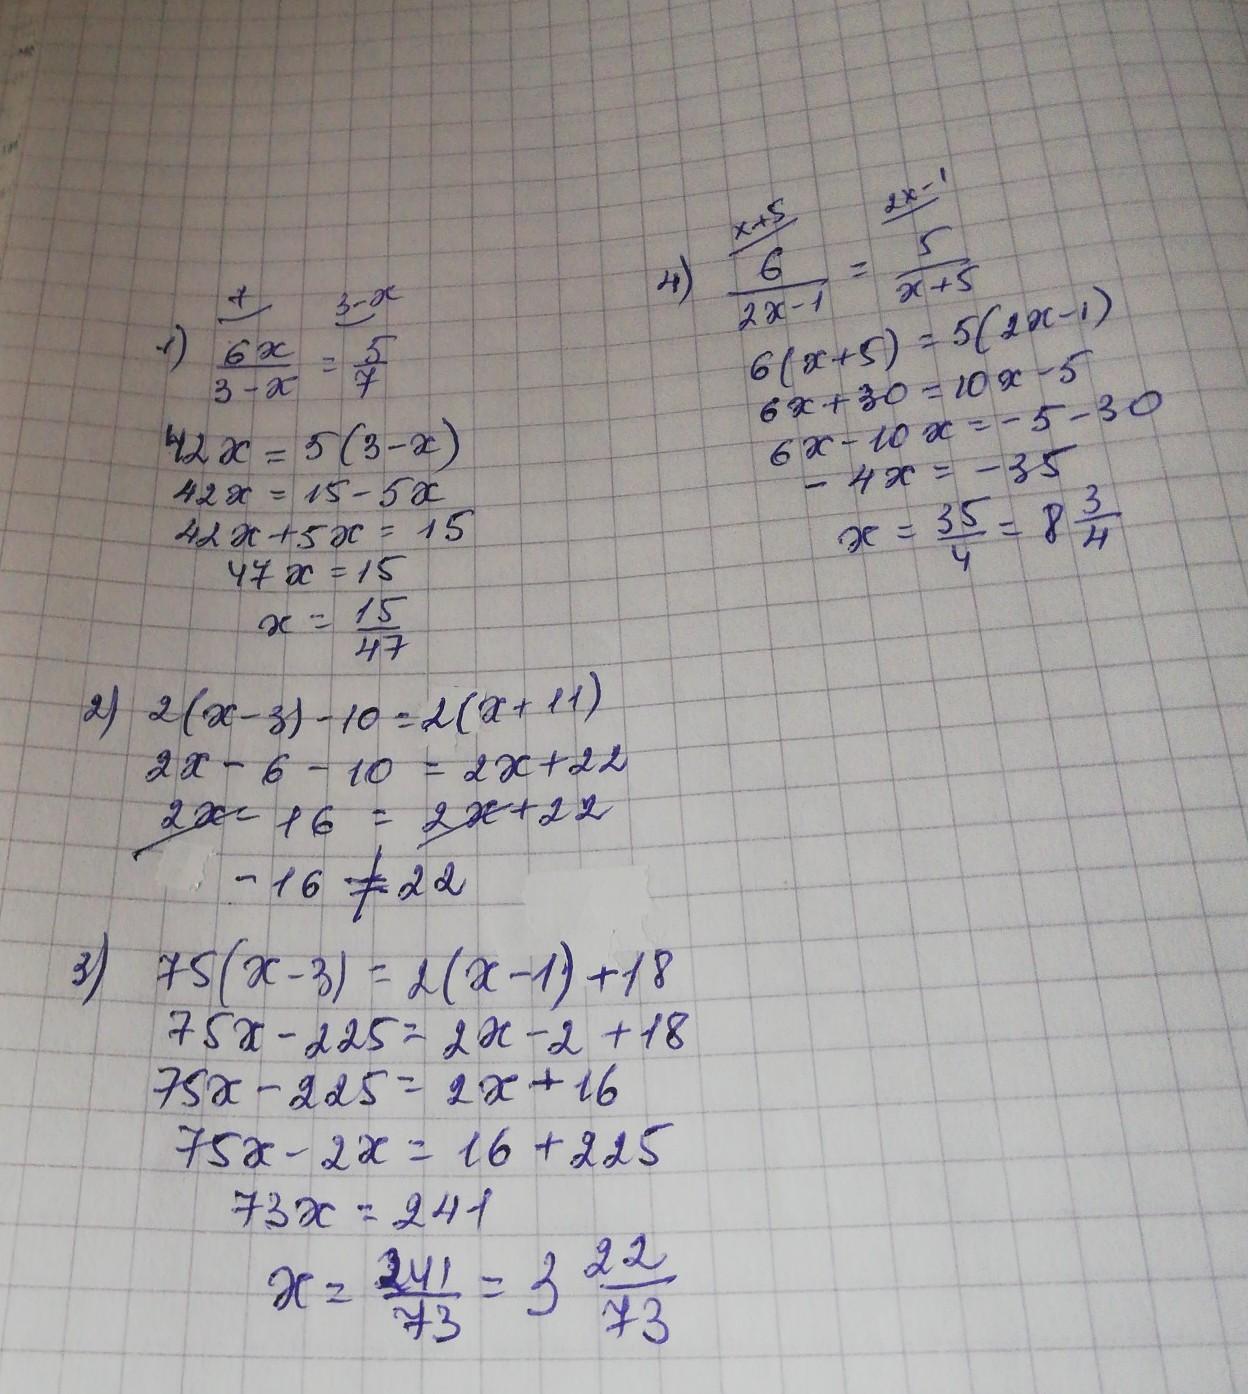 7 3-x
1) 6x/(3-x) = 5/7
42x = 5(3-x)
42x = 15-5x
42x+5x = 15
47x = 15
x = 15/47
2) 2(x-3)-10=2(x+11)
2x-6-10 = 2x+22
2x-16 = 2x+22
-16 ≠ 22
3) 75(x-3) = 2(x-1)+18
75x-225= 2x-2+18
75x-225= 2x+16
75x-2x= 16+225
73x = 241
x = 241/73 = 3 22/73
x+5 2x-1
4) 6/(2x-1) = 5/(x+5)
6(x+5) = 5(2x-1)
6x+30 = 10x-5
6x-10x = -5-30
-4x = -35
x = 35/4 = 8 3/4